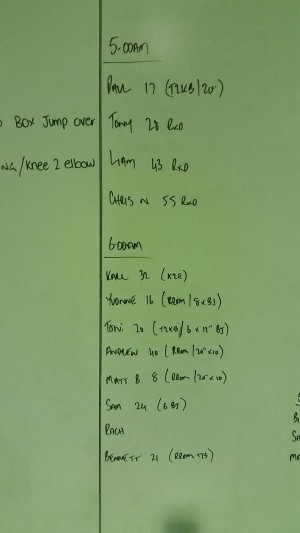 5:00AM
PAUL 17 (12KB/20")
Box Jump over
TONY 28 RXD
NG/Knee 2 elbow
LIAM 43 RXD
CHRIS N 55 RXD
6:00AM
KARL 32 (K2E)
YVONNE 16 (RROM/8xBJ)
TONI 20 (12KB/6x12" BJ)
ANDREW 40 (RROM/20"x10)
MATT B. 8 (RROM/20"x10)
SAM 24 (6 BJ)
RACH
BENNETT 21 (RROM